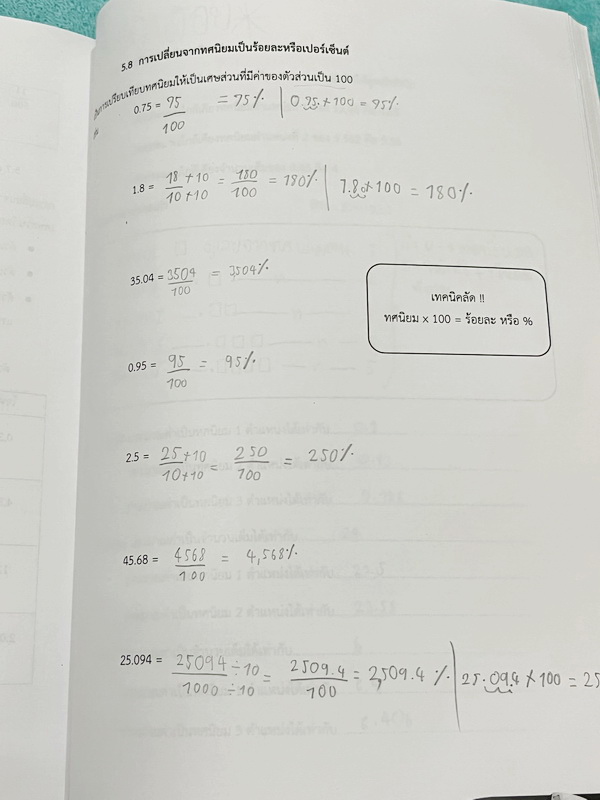 5.8 การเปลี่ยนจากทศนิยมเป็นร้อยละหรือเปอร์เซ็นต์
เป็นการเปรียบเทียบทศนิยมให้เป็นเศษส่วนที่มีค่าของตัวส่วนเป็น 100
0.75 = 95/100 = 75% | 0.95 × 100 = 95%
1.8 = 18×10/10×10 = 180/100 = 180% | 1.80×100 = 180%
35.04 = 3504/100 = 3504%
เทคนิคลัด !!
ทศนิยม × 100 = ร้อยละ หรือ %
0.95 = 95/100 = 95%
2.5 = 25×10/10×10 = 250/100 = 250%
45.68 = 4568/100 = 4,568%
25.094 = 25094÷10/1000÷10 = 2509.4/100 = 2,509.4 % | 25.094×100 = 25